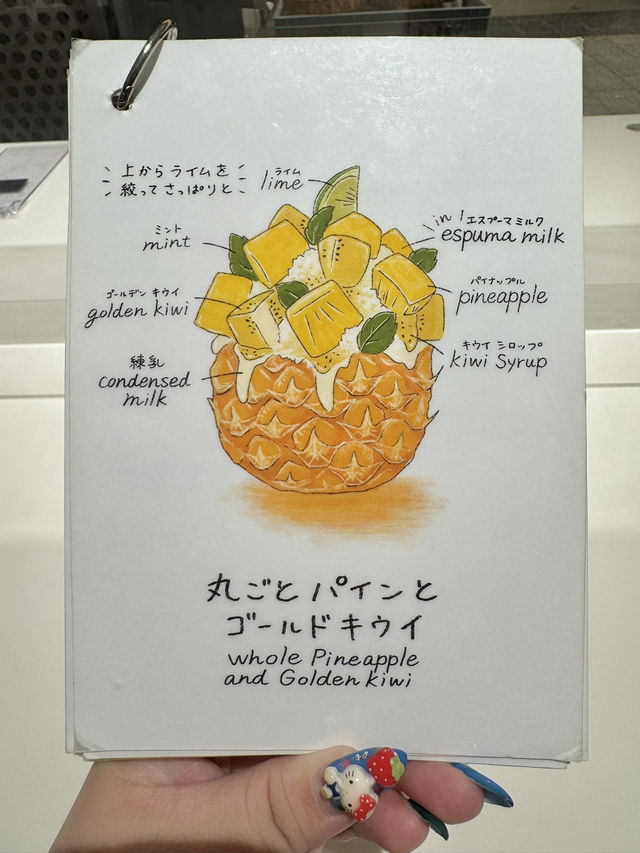 上からライムを
絞ってさっぱりと
ライム
lime
in！エスプーマミルク
espuma milk
ミント
mint
パイナップル
pineapple
ゴールデンキウイ
golden kiwi
キウイ シロップ
kiwi Syrup
練乳
condensed
milk
丸ごとパインと
ゴールドキウイ
whole Pineapple
and Golden kiwi